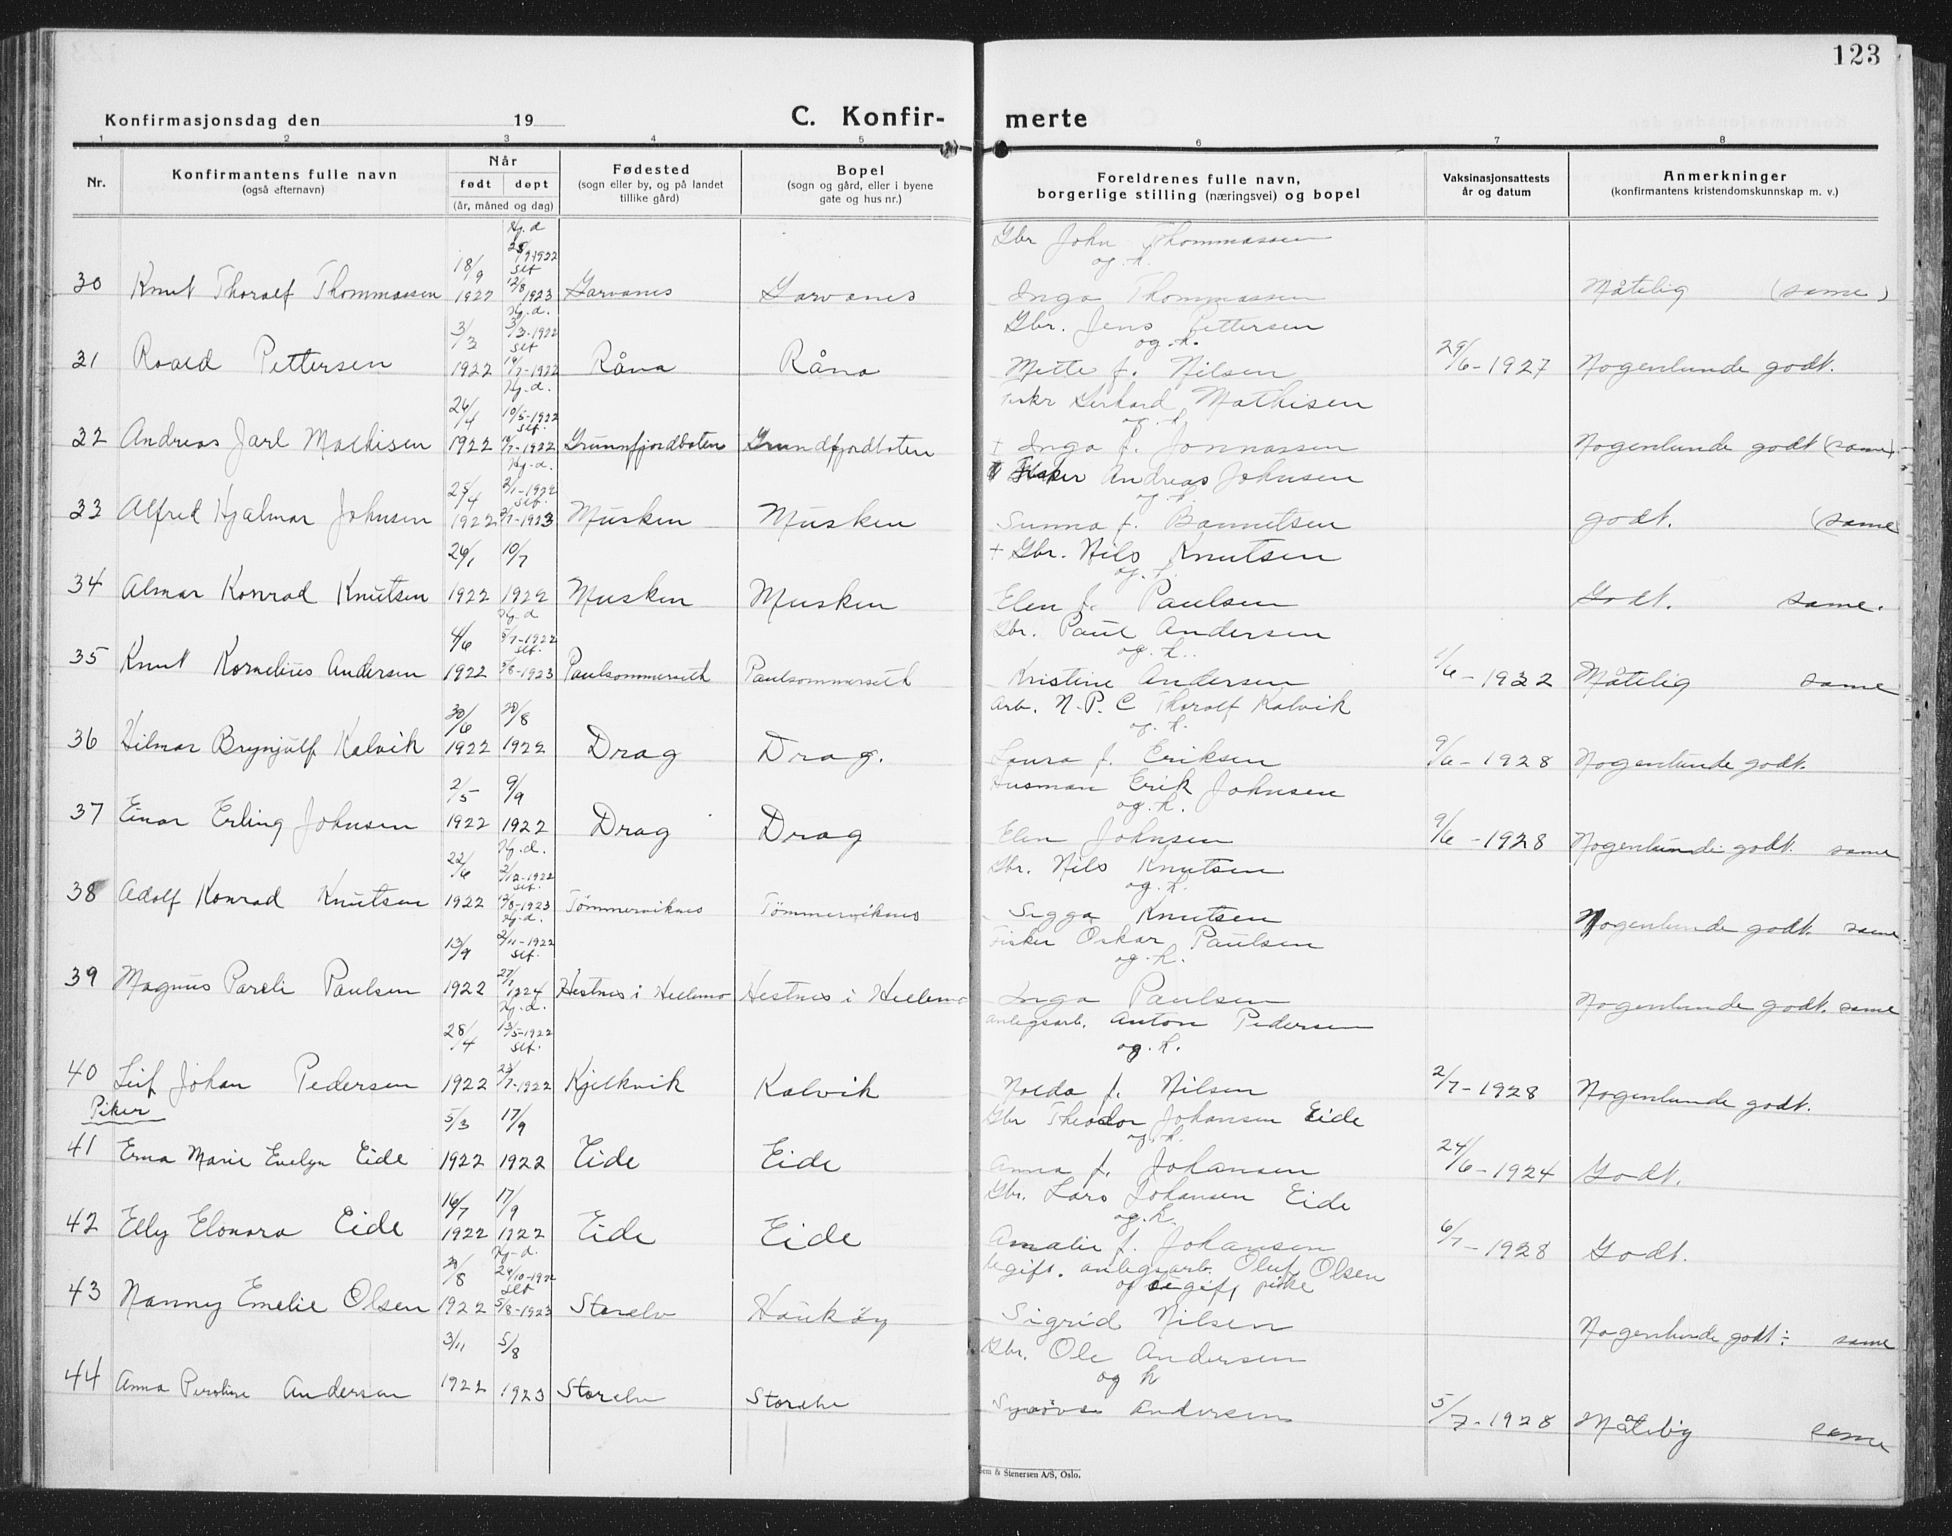 123
Konfirmasjonsdag den 19
C. Konfir- merte
1 2 3 4 5 6 7 8
Nr.
Konfirmantens fulle navn
(også efternavn)
Når
født døpt
(år, måned og dag)
Fødested
(sogn eller by, og på landet
tillike gård)
Bopel
(sogn og gård, eller i byene
gate og hus nr.)
Foreldrenes fulle navn,
borgerlige stilling (næringsvei) og bopel
Vaksinasjonsattests
år og datum
Anmerkninger
(konfirmantens kristendomskunnskap m. v.)
Hj.d. 25/9 1922 Gbr John Thommassen
18/9 set og h.
30 Knut Thoralf Thommassen 1922 12/8 1923 Garvanes Garvanes Inga Thommassen Måtelig (same)
Hj.d. Gbr. Jens Pettersen
3/3 3/3-1922 set og h.
31 Roald Pettersen 1922 14/7-1922 Råna Råna Mette f. Nilsen 29/6-1927 Nogenlunde godt.
Hj.d. Mathisen
26/4 10/5-1922 set. og h.
32 Andreas Jarl Mathisen 1922 Grunnfjordboten Grundfjordboten + Inga f. Jonnassen Nogenlunde godt (same).
Hj.d. Fisker Andreas Johnsen
25/4 2/1-1922 set. og h.
33 Alfred Hjalmar Johnsen 1922 2/7-1923 Musken Musken Sunna f. godt. (same
26/1 10/7 + Gbr. Nils Knutsen
og h.
34 Almar Konrad Knutsen 1922 1922 Musken Musken Elen f. Paulsen Godt. same.
Hj.d Gbr. Paul Andersen
4/6 5/7-1922 set. og h.
35 Knut Kornelius Andersen 1922 5/8-1923 Paulsommerseth Paulsommerseth Kristine Andersen 1/6-1932 Måtelig same
Arb. N.P.C Thoralf Kalvik
30/6 20/8 og h.
36 Hilmar Brynjulf Kalvik 1922 1922 Drag Drag. Laura f. Eriksen 9/6-1928 Nogenlunde godt.
2/5 9/9 Husman Erik Johnsen
og h.
37 Einar Erling Johnsen 1922 1922 Drag Drag Elen Johnsen 9/6-1928 Nogenlunde godt. same
Hj.d. Gbr. Nils Knutsen
22/6 2/12-1922 set. og h.
38 Adolf Konrad Knutsen 1922 12/8-1923 Tömmerviknes Tömmerviknes Sigga Knutsen Nogenlunde godt. same.
Hj.d. Fisker Oskar Paulsen
13/9 2/11-1922 set. og h.
39 Magnus Pareli Paulsen 1922 27/7 1924 Hestnes i Hellemo Hestnes i Hellemo Inga Paulsen Nogenlunde godt. same
Hj.d. anlegsarb. Anton Pedersen
28/4 13/5-1922 set. og h.
40 Leif Johan Pedersen 1922 23/7-1922 Kjelkvik Kalvik Nolda f. Nilsen 2/7-1928 Nogenlunde godt.
Piker
5/3 17/9 Gbr Theodor Johansen Eide
og h.
41 Erna Marie Evelyn Eide 1922 1922 Eide Eide Anna f. Johansen 24/6-1924 Godt.
16/7 17/9 Gbr. Lars Johansen Eide
og h.
42 Elly Elonara Eide 1922 1922 Eide Eide Amalie f. Johansen 6/7-1928 Godt.
Hj-d. ugift. anlegsarb. Oluf Olsen
20/8 29/10-1922 set og ugift pike
43 Nanny Emelie Olsen 1922 5/8-1923 Storelv Haukøy Sigrid Nilsen Nogenlunde godt: same
3/11 5/8 Gbr. Ole Andersen
og h
44 Anna Peroline Andersen 1922 1923 Storelv Storelv Synnöve Andersen 5/7-1928 Måtelig same
& Stenersen A/S, Oslo.